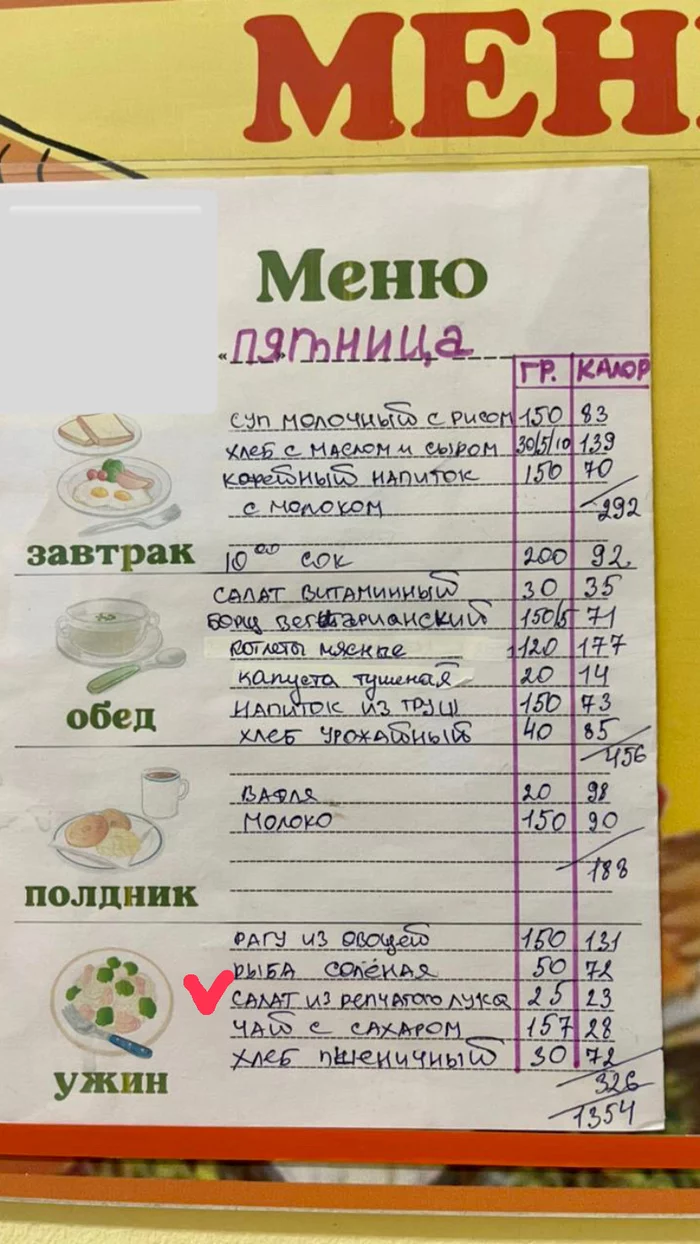 МЕН
Меню
«ПЯТНИЦА
ГР. КАЛОР
СУП МОЛОЧНЫЙ С РИСОМ 150 83
ХЛЕБ С МАСЛОМ И СЫРОМ 30/5/10 139
КОФЕЙНЫЙ НАПИТОК 150 70
С МОЛОКОМ 292
завтрак
10⁰⁰ СОК 200 92
САЛАТ ВИТАМИННЫЙ 30 35
БОРЩ ВЕГЕТАРИАНСКИЙ 150/5 71
КОТЛЕТЫ МЯСНЫЕ 120 177
КАПУСТА ТУШЕНАЯ 20 14
обед
НАПИТОК ИЗ ГРУШ 150 73
ХЛЕБ УРОЖАЙНЫЙ 40 85
456
ВАФЛЯ 20 98
МОЛОКО 150 90
188
полдник
РАГУ ИЗ ОВОЩЕЙ 150 131
РЫБА СОЛЁНАЯ 50 72
САЛАТ ИЗ РЕПЧАТОГО ЛУКА 25 23
ЧАЙ С САХАРОМ 157 28
ХЛЕБ ПШЕНИЧНЫЙ 30 72
ужин
326
1354